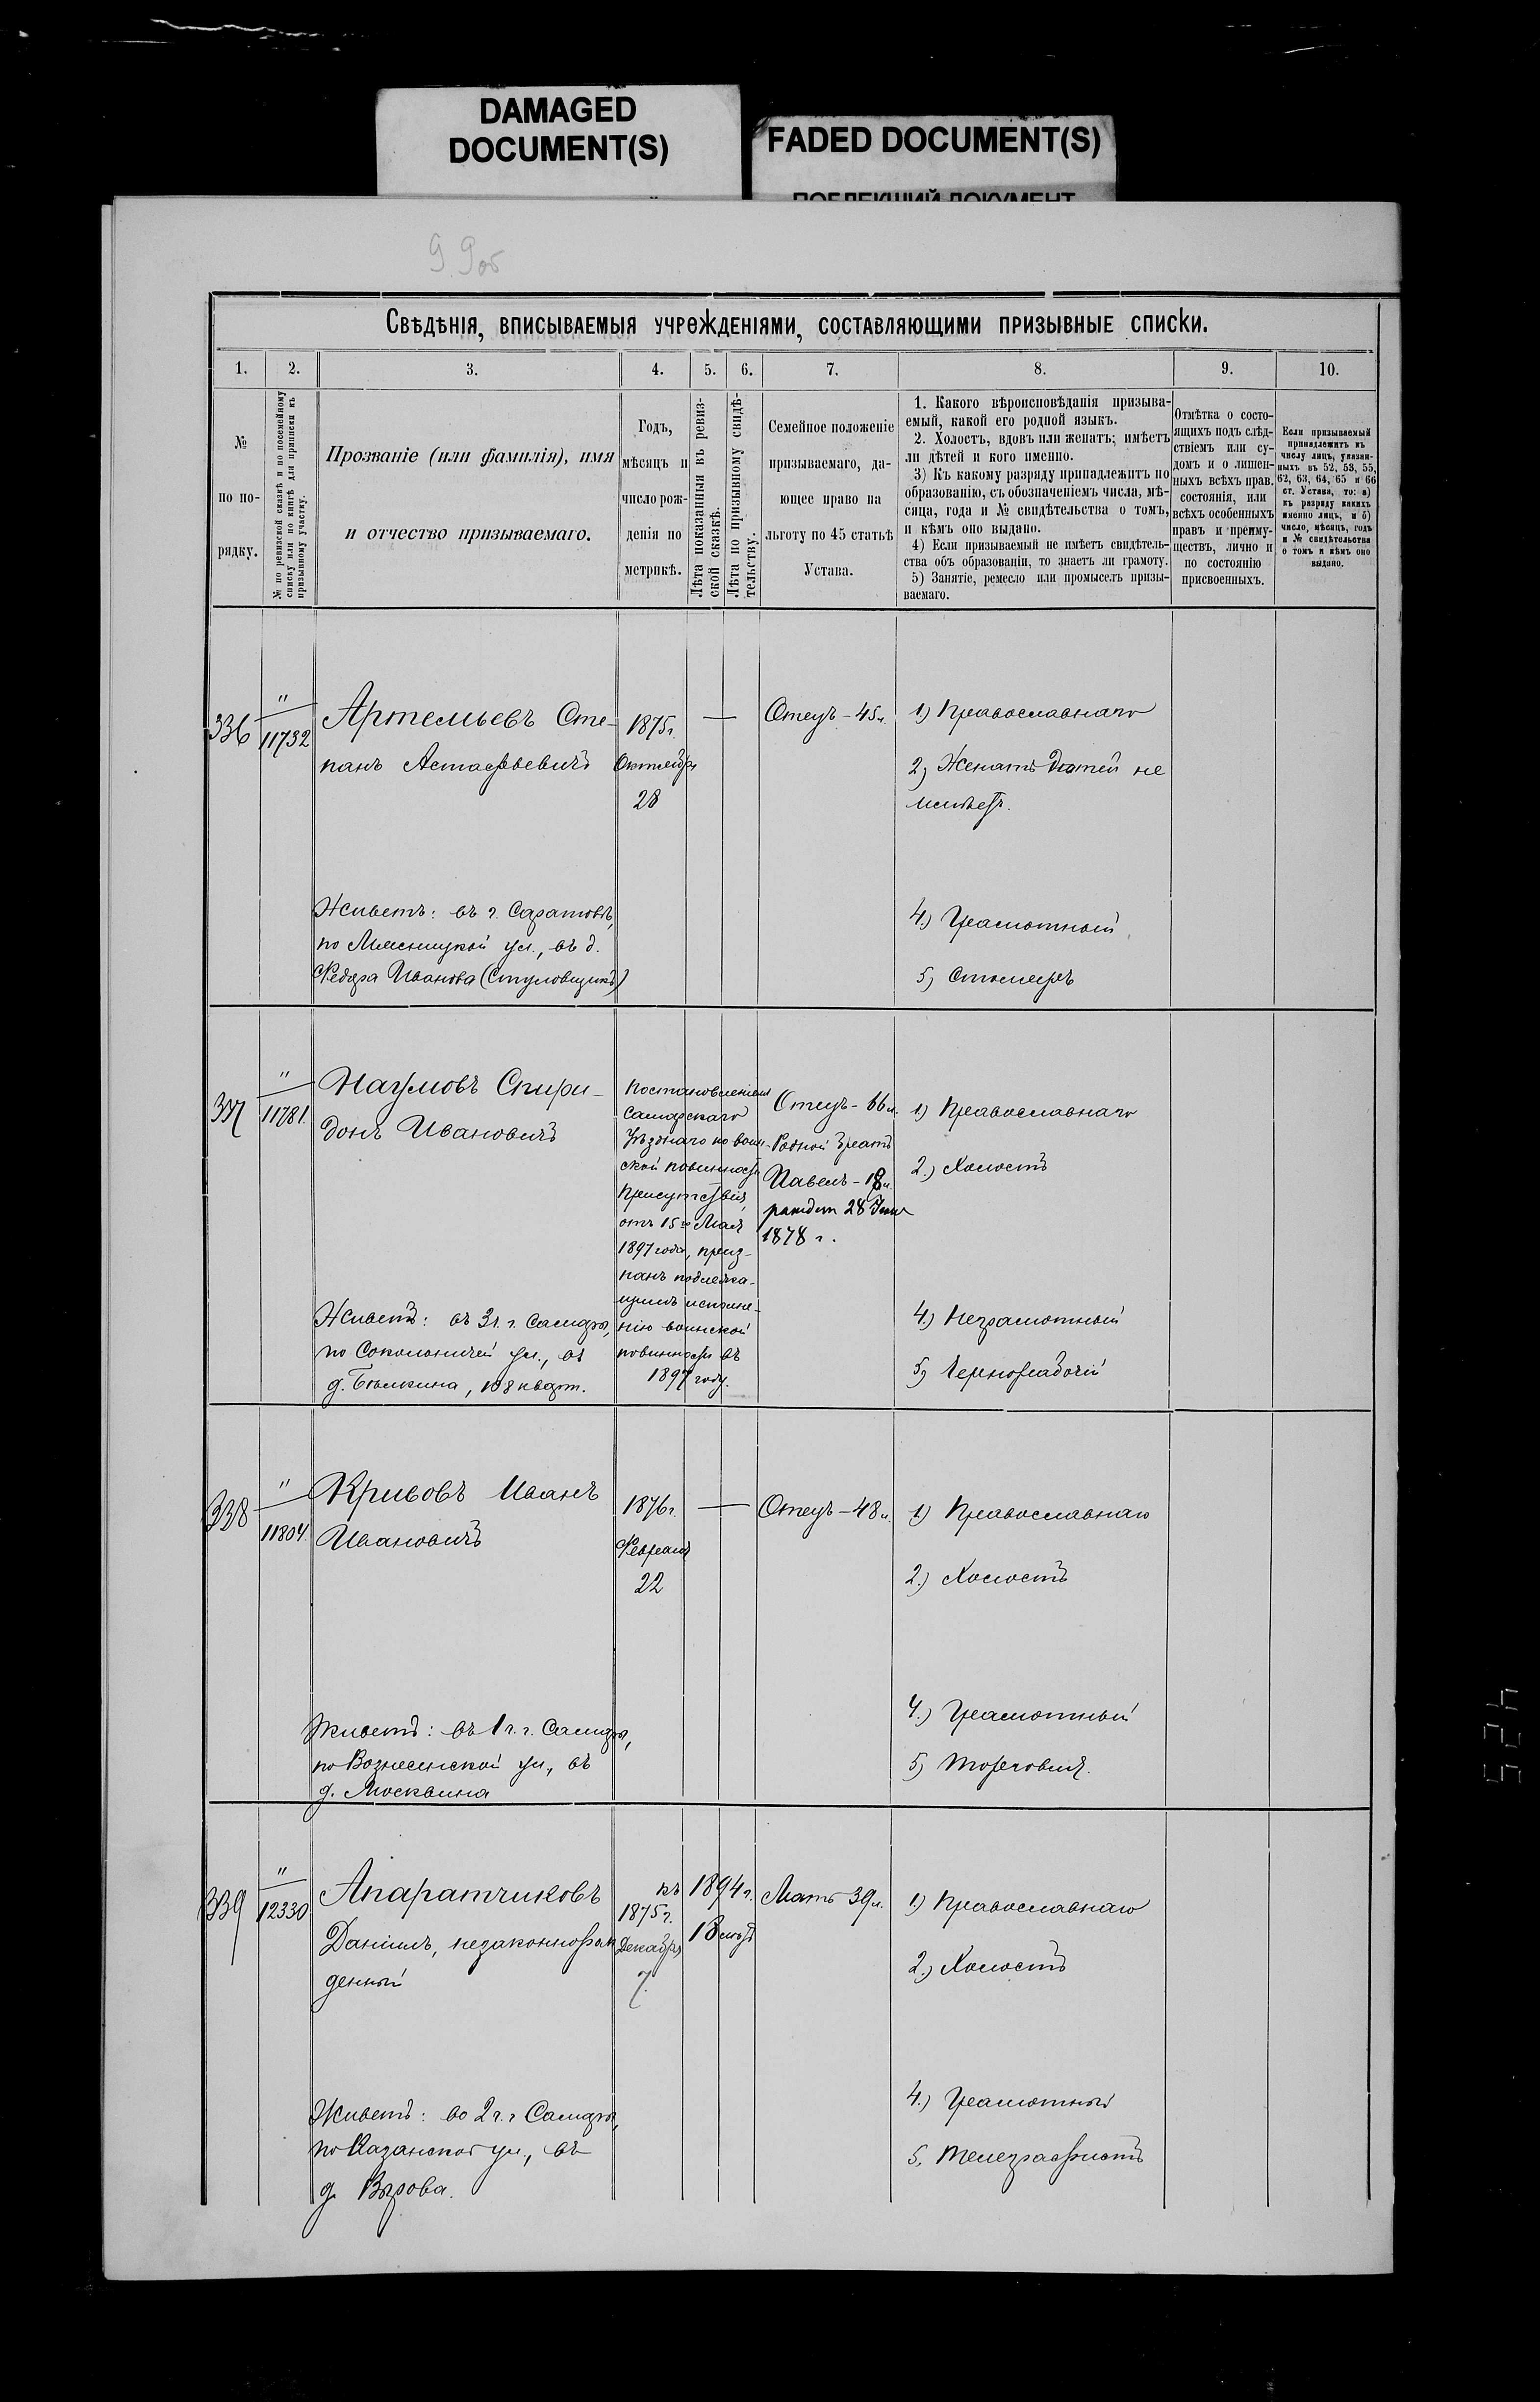 DAMAGED
DOCUMENT(S)
FADED DOCUMENT(S)
ПОБЛЕКШИЙ ДОКУМЕНТ
9 9об
Свѣдѣнія, вписываемыя учрежденіями, составляющими призывные списки.
1. 2. 3. 4. 5. 6. 7. 8. 9. 10.
№
по по-
рядку.
№ по ревизской сказкѣ и по посемейному
списку или по книгѣ для приписки къ
призывному участку.
Прозваніе (или фамилія), имя
и отчество призываемаго.
Годъ,
мѣсяцъ и
число рож-
денія по
метрикѣ.
Лѣта показанныя въ ревиз-
ской сказкѣ.
Лѣта по призывному свидѣ-
тельству.
Семейное положеніе
призываемаго, да-
ющее право на
льготу по 45 статьѣ
Устава.
1. Какого вѣроисповѣданія призыва-
емый, какой его родной языкъ.
2. Холостъ, вдовъ или женатъ; имѣетъ
ли дѣтей и кого именно.
3) Къ какому разряду принадлежитъ по
образованію, съ обозначеніемъ числа, мѣ-
сяца, года и № свидѣтельства о томъ,
и кѣмъ оно выдано.
4) Если призываемый не имѣетъ свидѣтель-
ства объ образованіи, то знаетъ ли грамоту.
5) Занятіе, ремесло или промыселъ призы-
ваемаго.
Отмѣтка о состо-
ящихъ подъ слѣд-
ствіемъ или су-
домъ и о лишен-
ныхъ всѣхъ прав.
состоянія, или
всѣхъ особенныхъ
правъ и преиму-
ществъ, лично и
по состоянію
присвоенныхъ.
Если призываемый
принадлежитъ къ
числу лицъ, указан-
ныхъ въ 52, 53, 55,
62, 63, 64, 65 и 66
ст. Устава, то: а)
къ разряду какихъ
именно лицъ, и б)
число, мѣсяцъ, годъ
и № свидѣтельства
о томъ и кѣмъ оно
выдано.
336
"
11732
Артемьевъ Сте-
панъ Астафьевичъ
Живетъ: въ г. Саратовѣ,
по Мясницкой ул., въ д.
Федора Иванова (Стуловщикъ)
1875г.
Октября
28
—
Отецъ - 45л.
1) Православнаго
2) Женатъ дѣтей не
имѣетъ.
4.) Грамотный
5) Столяръ
337
"
11781.
Наумовъ Спири-
донъ Ивановичъ
Живетъ: въ 3ч. г. Самары,
по Сокольничей ул., въ
д. Бѣлкина, 108 кварт.
Постановленіемъ
Самарскаго
Уѣзднаго по воин-
ской повинности
Присутствія,
отъ 15го Мая
1897 года, приз-
нанъ подлежа-
щимъ исполне-
нію воинской
повинности въ
1897 году.
Отецъ - 66л.
Родной братъ
Павелъ - 18л.
28 Іюня
1878 г.
1) Православнаго
2.) Холостъ
4.) Неграмотный
5) Чернорабочій
338
"
11804.
Кривовъ Иванъ
Ивановичъ
Живетъ: въ 1 ч. г. Самары,
по Вознесенской ул., въ
д. Москвина
1876г.
Февраля
22
—
Отецъ - 48л.
1) Православнаго
2.) Холостъ
4.) Грамотный
5) Торговля.
339
"
12330
Апаратчиковъ
Даніилъ, незаконнорож
денный
Живетъ: во 2 ч. г Самары,
по Казанской ул., въ
д. Вырова.
къ 1894г.
1875г.
18 лѣтъ
Декабря
7.
Мать 39л.
1) Православнаго
2.) Холостъ
4.) Грамотный
5. Телеграфистъ
425